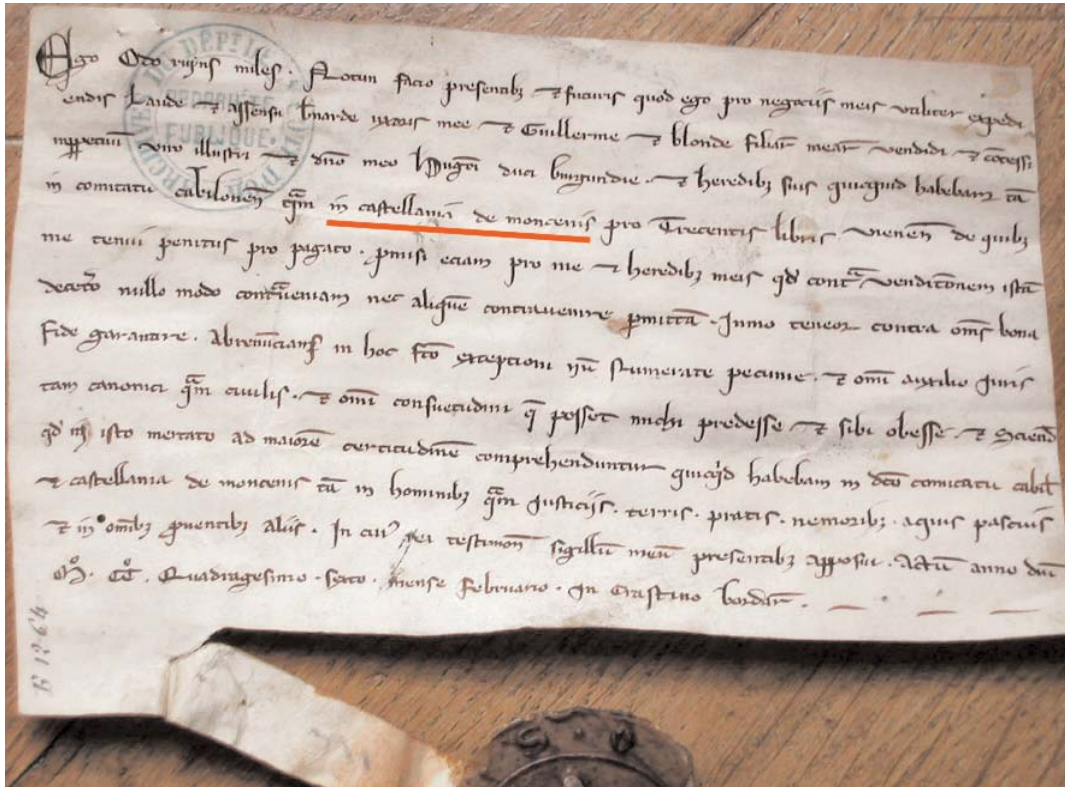 Ego Odo miles. Notum facio presentibꝫ ⁊ futuris quod ego pro negociis meis utiliter expedi
endis laude ⁊ assensu uxoris mee ⁊ Guillerme ⁊ blonde filiaꝝ meaꝝ vendidi ⁊ cōcessi
inꝑpetuū viro illustri ⁊ dn̄o meo hugōi duci burgundie. ⁊ heredibꝫ suis quicquid habebam tā
in comitatu cabilonen̄ qᵃ̄m in castellania de moncenis pro Trecentis libris vienen̄ de quibꝫ
me tenui penitus pro pagato. ꝓmisi eciam pro me ⁊ heredibꝫ meis qđ contᵃ vendicōnem istā
decetº nullo modo contᵃveniam nec aliquē contravenire ꝑmittā. Inmo teneor contra om̄s bona
fide garantire. Abrenūcians in hoc fc̄o exceptioni nō numerate pecunie. ⁊ om̄i auxilio juris
tam canonici qᵃ̄m civilis. ⁊ om̄i consuetudini q̄ posset michi predesse ⁊ sibi obesse. ⁊ Sciend̄
qđ in isto mercato ad maiorē certitudinē comprehenduntur quicqⁱd habebam in dc̄o comitatu cabil̄
⁊ castellania de moncenis tā in hominibꝫ qᵃ̄m justiciis. terris. pratis. nemoribꝫ. aquis pascuis
⁊ in om̄ibꝫ ꝓventibꝫ aliis. In cuiꝰ rei testimon̄ sigillū meū presentibꝫ apposui. Actū anno dn̄i
Mº. CCº. Quadragesimo. sexto. mense Februario. In Crastino bordaꝝ.
B 1264